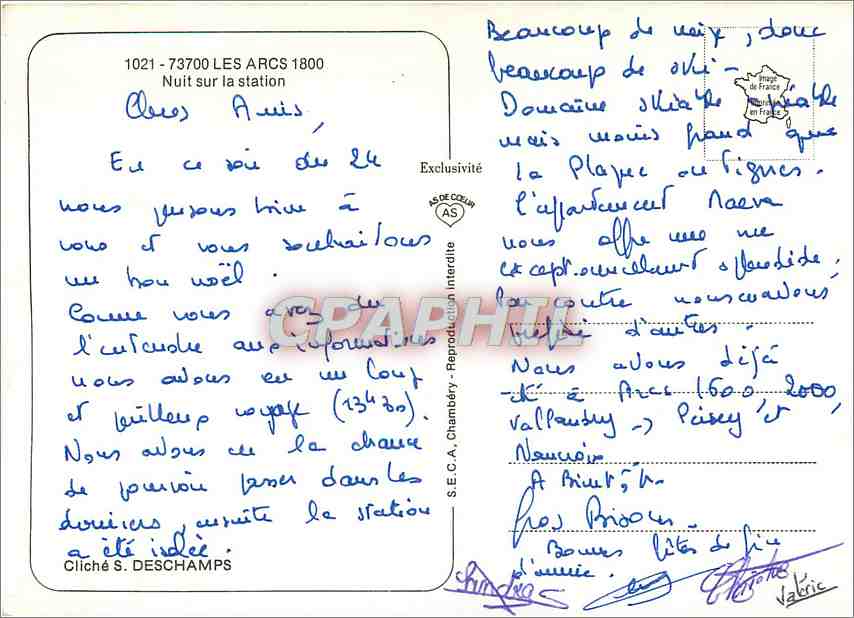 1021 - 73700 LES ARCS 1800
Nuit sur la station
Chers Amis,
En ce soir du 24
nous pensons bien à
vous et vous souhaitons
un bon noël.
Comme vous avez du
l'entendre aux informations
nous avons eu un long
et périlleux voyage (13h30).
Nous avons eu la chance
de pouvoir passer dans les
derniers, ensuite la station
a été isolée.
Cliché S. DESCHAMPS
Exclusivité
AS DE CŒUR
AS
S.E.C.A, Chambéry - Reproduction interdite
Beaucoup de neige, donc
beaucoup de ski -
Domaine skiable
mais moins grand que
la Plagne ou Tignes.
l'appartement Maeva
nous offre une vue
exceptionnellement splendide.
Par contre nous avons
d'autres.
Nous avons déjà
été à Arcs 1600, 2000,
Vallandry -> Peisey et
Nancroix.
A Bientôt.
Gros Bisous.
Bonnes fêtes de fin
d'année.
Sandra
Valérie
Image
de France
en France
CPAPHIL